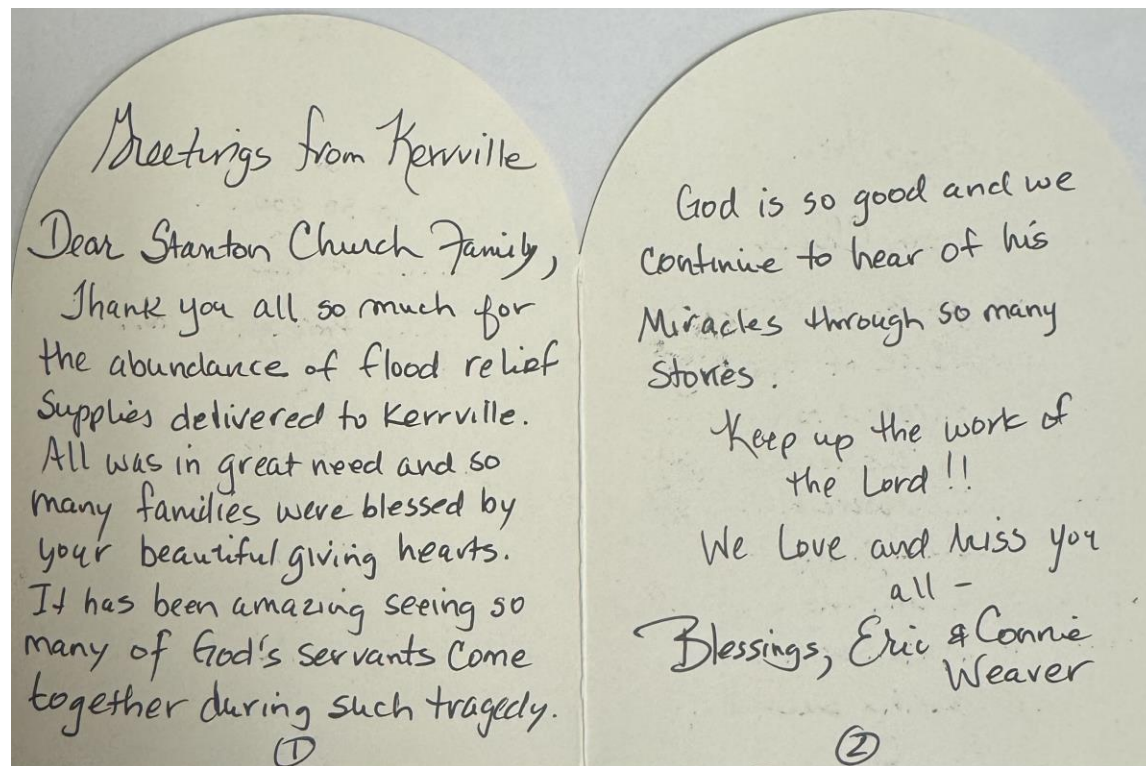 Greetings from Kerrville
Dear Stanton Church Family,
Thank you all so much for
the abundance of flood relief
Supplies delivered to Kerrville.
All was in great need and so
many families were blessed by
your beautiful giving hearts.
It has been amazing seeing so
many of God's servants come
together during such tragedy.
①
God is so good and we
continue to hear of his
Miracles through so many
Stories.
Keep up the work of
the Lord!!
We Love and Miss you
all -
Blessings, Eric & Connie
Weaver
②